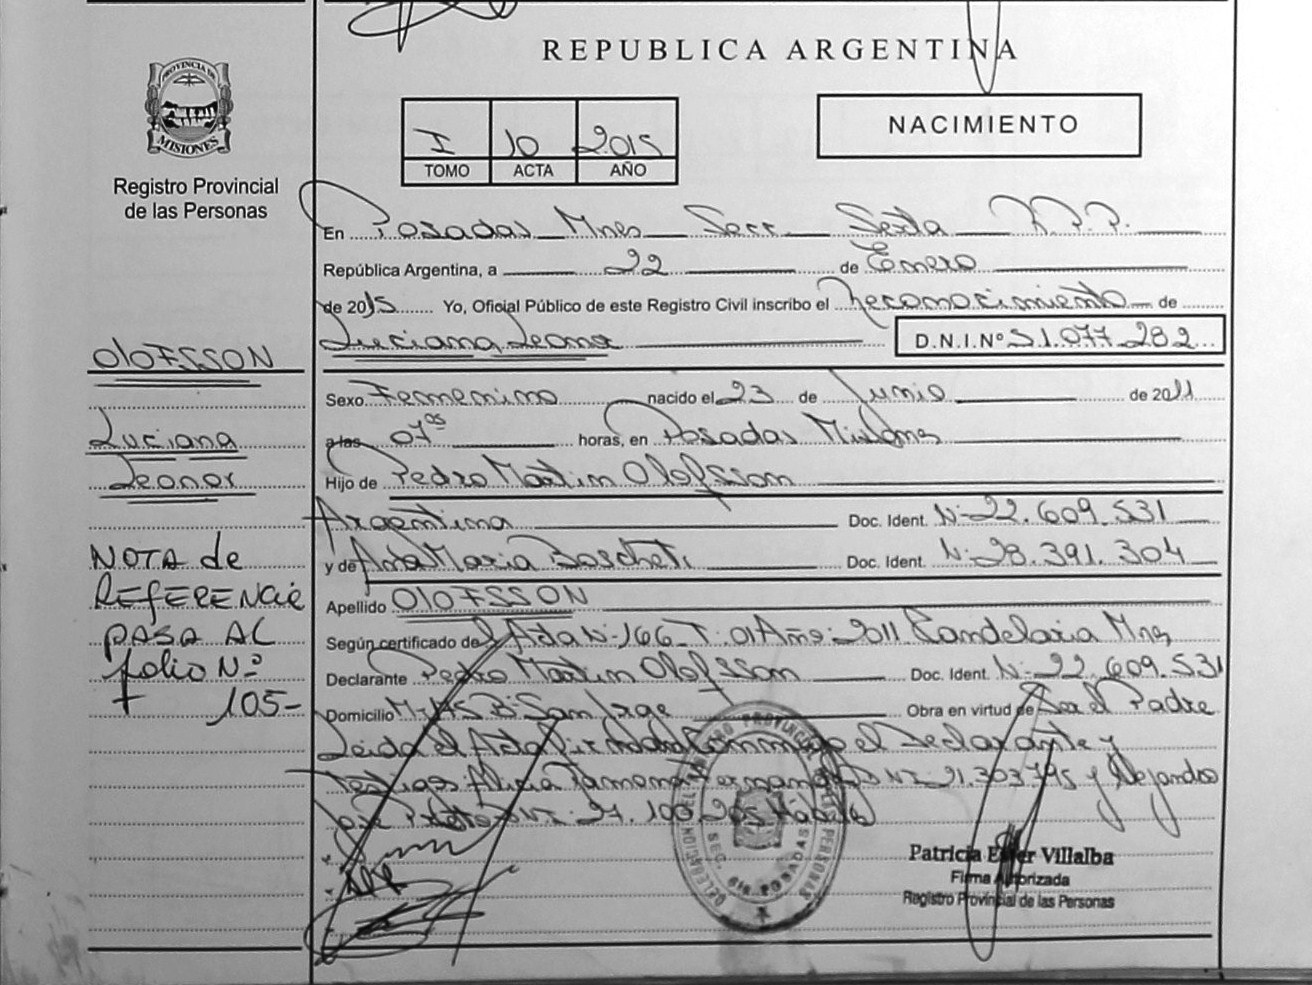 REPUBLICA ARGENTINA
PROVINCIA DE
MISIONES
Registro Provincial
de las Personas
I 10 2015
TOMO ACTA AÑO
NACIMIENTO
En Posadas Mnes Secc Sexta R.P.P.
República Argentina, a 22 de Enero
de 2015 Yo, Oficial Público de este Registro Civil inscribo el Reconocimiento de
Luciana Leonor D.N.I.Nº 51.077.282
OlOFSSON
Luciana
Leonor
NOTA de
REfERENCIA
PASA AL
folio Nº
105-
Sexo Femenino nacido el 23 de Junio de 2011
a las 07 05 horas, en Posadas Misiones
Hijo de Pedro Martin Olofsson
Argentina Doc. Ident. Nº 22.609.531
y de Ana Maria Boscheti Doc. Ident. Nº 28.391.304
Apellido OlOFSSON
Según certificado de l Acta Nº 166 Tº 01 Año 2011 Candelaria Mnes
Declarante Pedro Martin Olofsson Doc. Ident. Nº 22.609.531
Domicilio Bº San Jorge Obra en virtud de Ser el Padre
Leida el Acta Firman Conmigo el Declarante y
Testigos Alicia Ramona DNI 21.303.795 y Alejandro
José DNI 27.100.205 Hábiles
SEC. 6ta. POSADAS
Patricia Ester Villalba
Firma Autorizada
Registro Provincial de las Personas